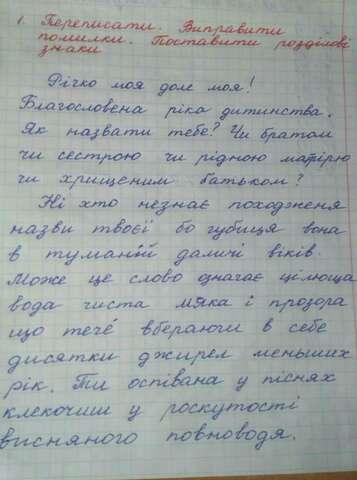 1. Переписати. Виправити
помилки. Поставити розділові
знаки
Річко моя доле моя!
Благословена ріка дитинства.
Як назвати тебе? Чи братом
чи сестрою чи рідною матірю
чи хрищеним батьком?
Ні хто незнає походженя
назви твоєї бо губиця вона
в туманій даличі віків.
Може це слово ознагає цілюща
вода чиста мяка і прозора
що тече вбераючи в себе
дисятки джирел меньших
рік. Ти оспівана у піснях
клекочиш у роскутості
висняного повноводя.